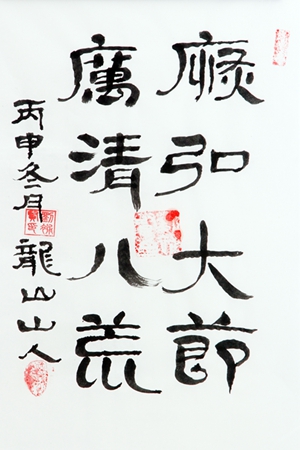 弘大節
厲清八荒
丙申冬月龍山山人